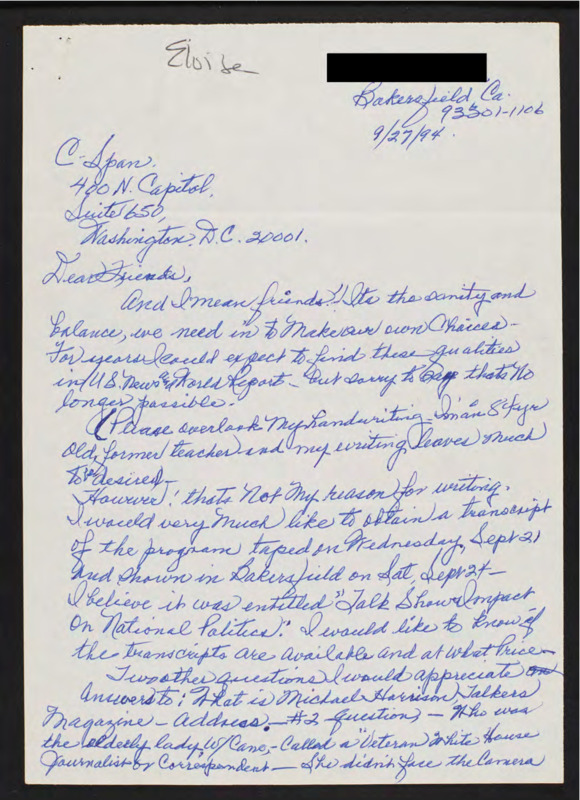 Eloise
Bakersfield Ca.
93301-1106
9/27/94.
C-Span.
400 N. Capitol,
Suite 650,
Washington, D.C. 20001.
Dear Friends,
And I mean friends"! Its the sanity and
balance, we need in to Make our own Choices -
For years I could expect to find these qualities
in U.S. News & World Report - but sorry to say thats No
longer possible.
(Please overlook My handwriting - I'm an 84 yr
old, former teacher and my writing leaves much
to be desired -
However! thats Not My reason for writing.
I would very much like to obtain a transcript
of the program taped on Wednesday, Sept 21
and shown in Bakersfield on Sat, Sept 24 -
I believe it was entitled "Talk Show Impact
on National Politics." I would like to know if
the transcripts are available and at what Price -
Two other questions I would appreciate
answers to: What is Michael Harrison, Talkers
Magazine - address. - #2 question - Who was
the elderly lady W/Cane, - Called a "Veteran White House
Journalist or Correspondent - She didn't face the Camera